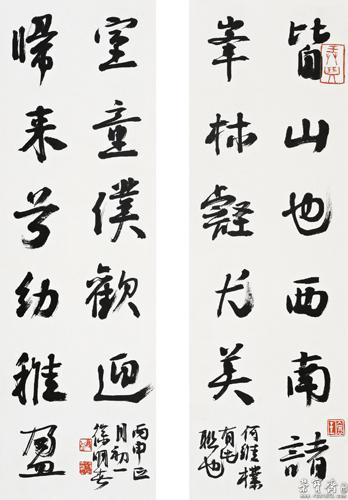 皆山也西南諸
峯林壑尤美
何維樸
有此
聯也
歸来兮幼稚盈
室童僕歡迎
丙申正
月初一
徐明